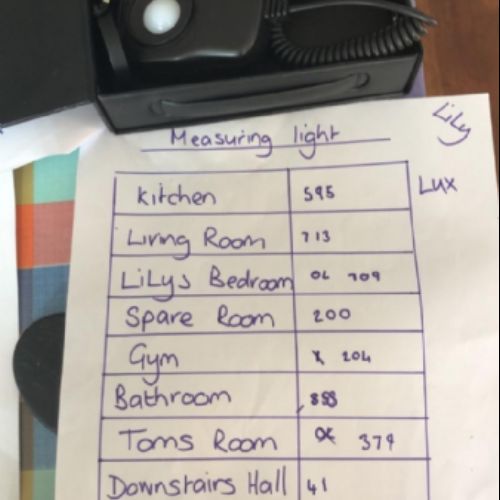 Lily
Measuring light
Kitchen 595 Lux
Living Room 713
LiLys Bedroom OL 709
Spare Room 200
Gym X 204
Bathroom 858
Toms Room 379
Downstairs Hall 41